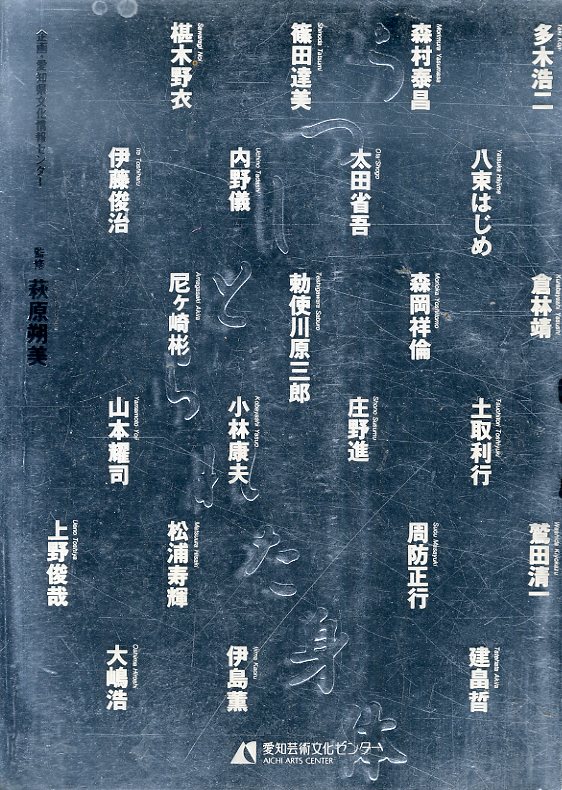 多木浩二
Morimura Yasumasa
森村泰昌
Shinoda Tatsumi
篠田達美
Sawaragi Noi
椹木野衣
Yatsuka Hajime
八束はじめ
Ota Shogo
太田省吾
Uchino Tadashi
内野儀
Ito Toshiharu
伊藤俊治
Kurabayashi Yasushi
倉林靖
Morioka Yoshitomo
森岡祥倫
Teshigawara Saburo
勅使川原三郎
Amagasaki Akira
尼ヶ崎彬
Tsuchitori Toshiyuki
土取利行
Shono Susumu
庄野進
Kobayashi Yasuo
小林康夫
Yamamoto Yoji
山本耀司
Washida Kiyokazu
鷲田清一
Suou Masayuki
周防正行
Matsuura Hisaki
松浦寿輝
Ueno Toshiya
上野俊哉
Tatehata Akira
建畠晢
Iijima Kaoru
伊島薫
Oshima Hiroshi
大嶋浩
うつしとられた身体
企画・愛知県文化情報センター
監修 萩原朔美
愛知芸術文化センター
AICHI ARTS CENTER